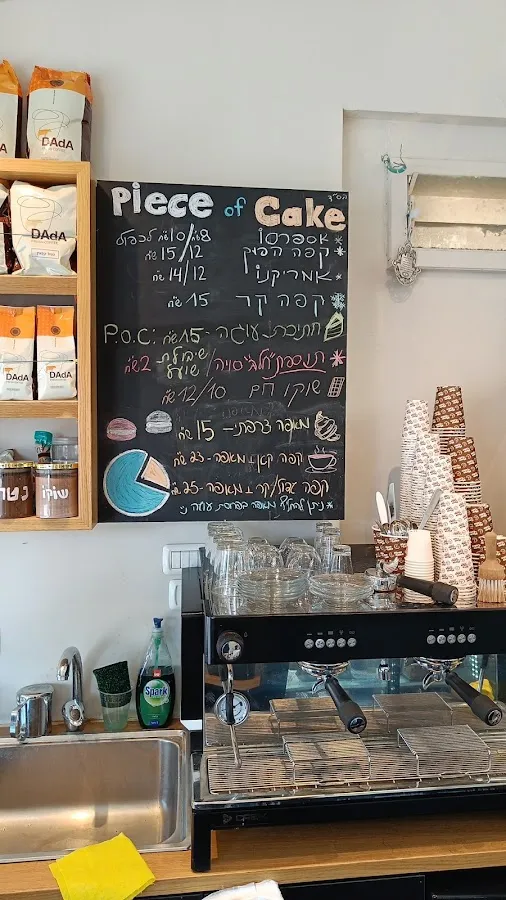 בס"ד
Piece of Cake
אספרסו 8/10 ש"ח לכפול
קפה הפוך 12/15 ש"ח
אמריקנו 12/14 ש"ח
קפה קר 15 ש"ח
חתיכת עוגה - 15 ש"ח P.O.C:
תוספת "חלב" סויה/שיבולת שועל 2 ש"ח
שוקו חם 10/12 ש"ח
מאפה צרפתי - 15 ש"ח
קפה קטן + מאפה - 23 ש"ח
קפה גדול/קר + מאפה - 25 ש"ח
ניתן להחליף מאפה בפרוסת עוגה
DAdA
DAdA
DAdA
DAdA
שוקו
Spark